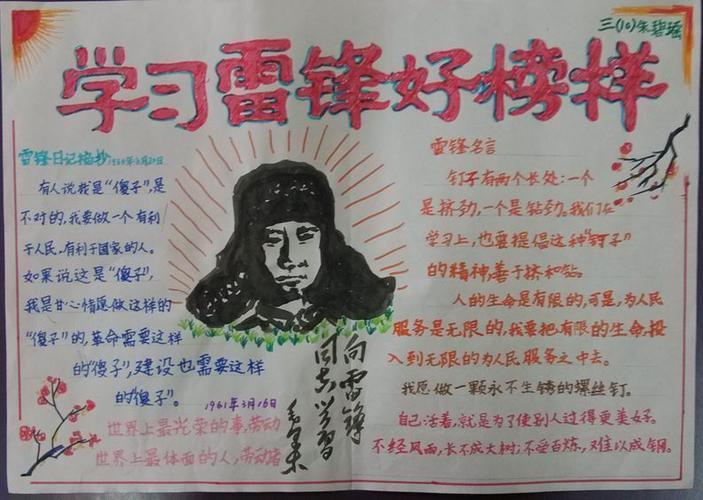 三(10)朱碧瑶
学习雷锋好榜样
雷锋日记摘抄
有人说我是“傻子”,是
不对的,我要做一个有利
于人民,有利于国家的人。
如果说这是“傻子”,
我是甘心情愿做这样的
“傻子”的,革命需要这样
的“傻子”,建设也需要这样
的“傻子”。
1961年3月16日
世界上最光荣的事,劳动
世界上最体面的人,劳动者
向雷锋
同志学习
毛泽东
雷锋名言
钉子有两个长处:一个
是挤劲,一个是钻劲。我们在
学习上,也要提倡这种“钉子”
的精神,善于挤和钻。
人的生命是有限的,可是,为人民
服务是无限的,我要把有限的生命,投
入到无限的为人民服务之中去。
我愿做一颗永不生锈的螺丝钉。
自己活着,就是为了使别人过得更美好。
不经风雨,长不成大树;不受百炼,难以成钢。